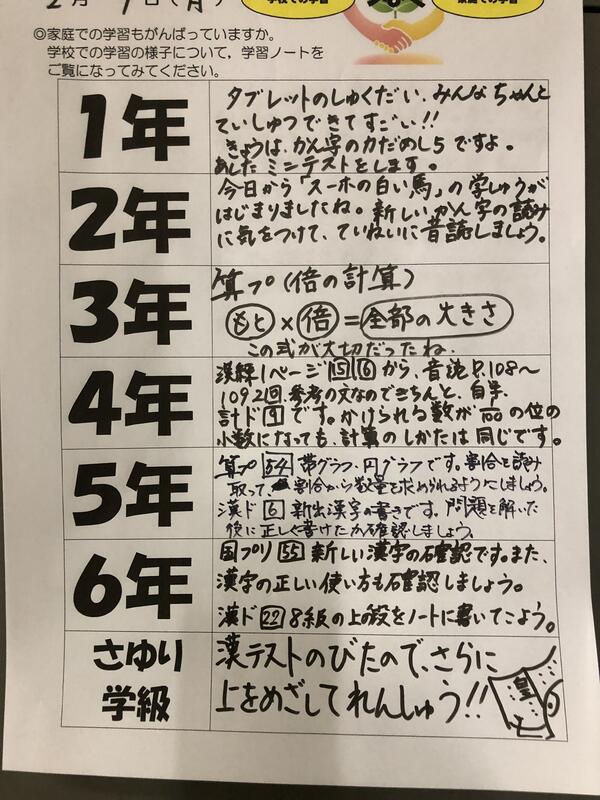 2月 9日(月)
学校での学習
家庭での学習
◎家庭での学習もがんばっていますか。
学校での学習の様子について、学習ノートを
ご覧になってみてください。
1年
タブレットのしゅくだい、みんなちゃんと
ていしゅつできてすごい!!
きょうは、かん字の力だめし5ですよ。
あしたミニテストをします。
2年
今日から「スーホの白い馬」の学しゅうが
はじまりましたね。新しいかん字の読み
に気をつけて、ていねいに音読しましょう。
3年
算プ(倍の計算)
もと×倍=全部の大きさ
この式が大切だったね。
4年
漢練1ページ 15 16 から、音読P.108～
109 2回、参考の文なのできちんと、自学、
計ド 9 です。かけられる数が 1/100 の位の
小数になっても、計算のしかたは同じです。
5年
算プ 54 帯グラフ、円グラフです。割合を読み
取って、割合から数量を求められるようにしましょう。
漢ド 6 新出漢字の書きです。問題を解いた
後に正しく書けたか確認しましょう。
6年
国プリ 55 新しい漢字の確認です。また、
漢字の正しい使い方も確認しましょう。
漢ド 22 8級の上段をノートに書いてこよう。
さゆり
学級
漢テストのびたので、さらに
上をめざしてれんしゅう!!
皇